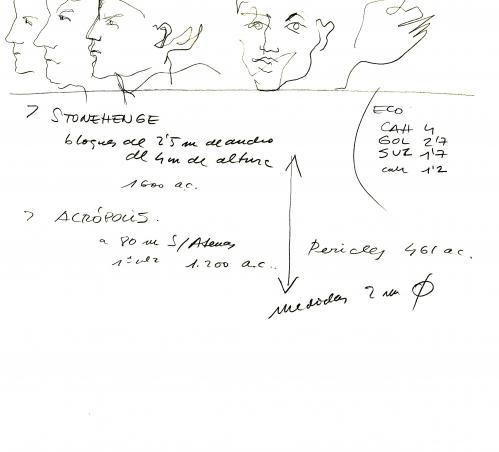 > STONEHENGE
bloques de 2'5 m de ancho
de 4 m de altura
1600 a.c.
> ACRÓPOLIS.
a 80 m S/Atenas
1ª vez 1.200 a.c..
ECO
CAH 4
GOL 2'7
SUZ 1'7
cah 1'2
Pericles 461 a.c.
medidas 2 m Ø